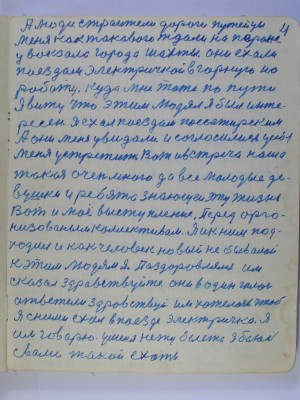 4
А люди строители дороги путейцы
меня как такавого ждали на пароне
у вокзала города Шахты. они ехали
поездам электричкой в горную на
работу. куда мне тоже по пути
Я вижу что этим людям я был инте-
ресен. Я ехал поездам пассажирским
А они меня увидали и согласились
меня устретить Вот и встреча наша
такая очен много да все молодые де-
вушки и ребята знающие эту жизнь
Вот и моё выступление. Перед орга-
низованым коллективам. Я и к ним под-
ходил и как человек новый не бывалой
к этим людям я. Поздоровлялся им
сказал здравствуйте они в один голос
ответили здравствуй им хотелось чтоб
Я сними ехал в поезде электричка. Я
им говорю. у меня нету белета я боюсь
Свами такой ехать